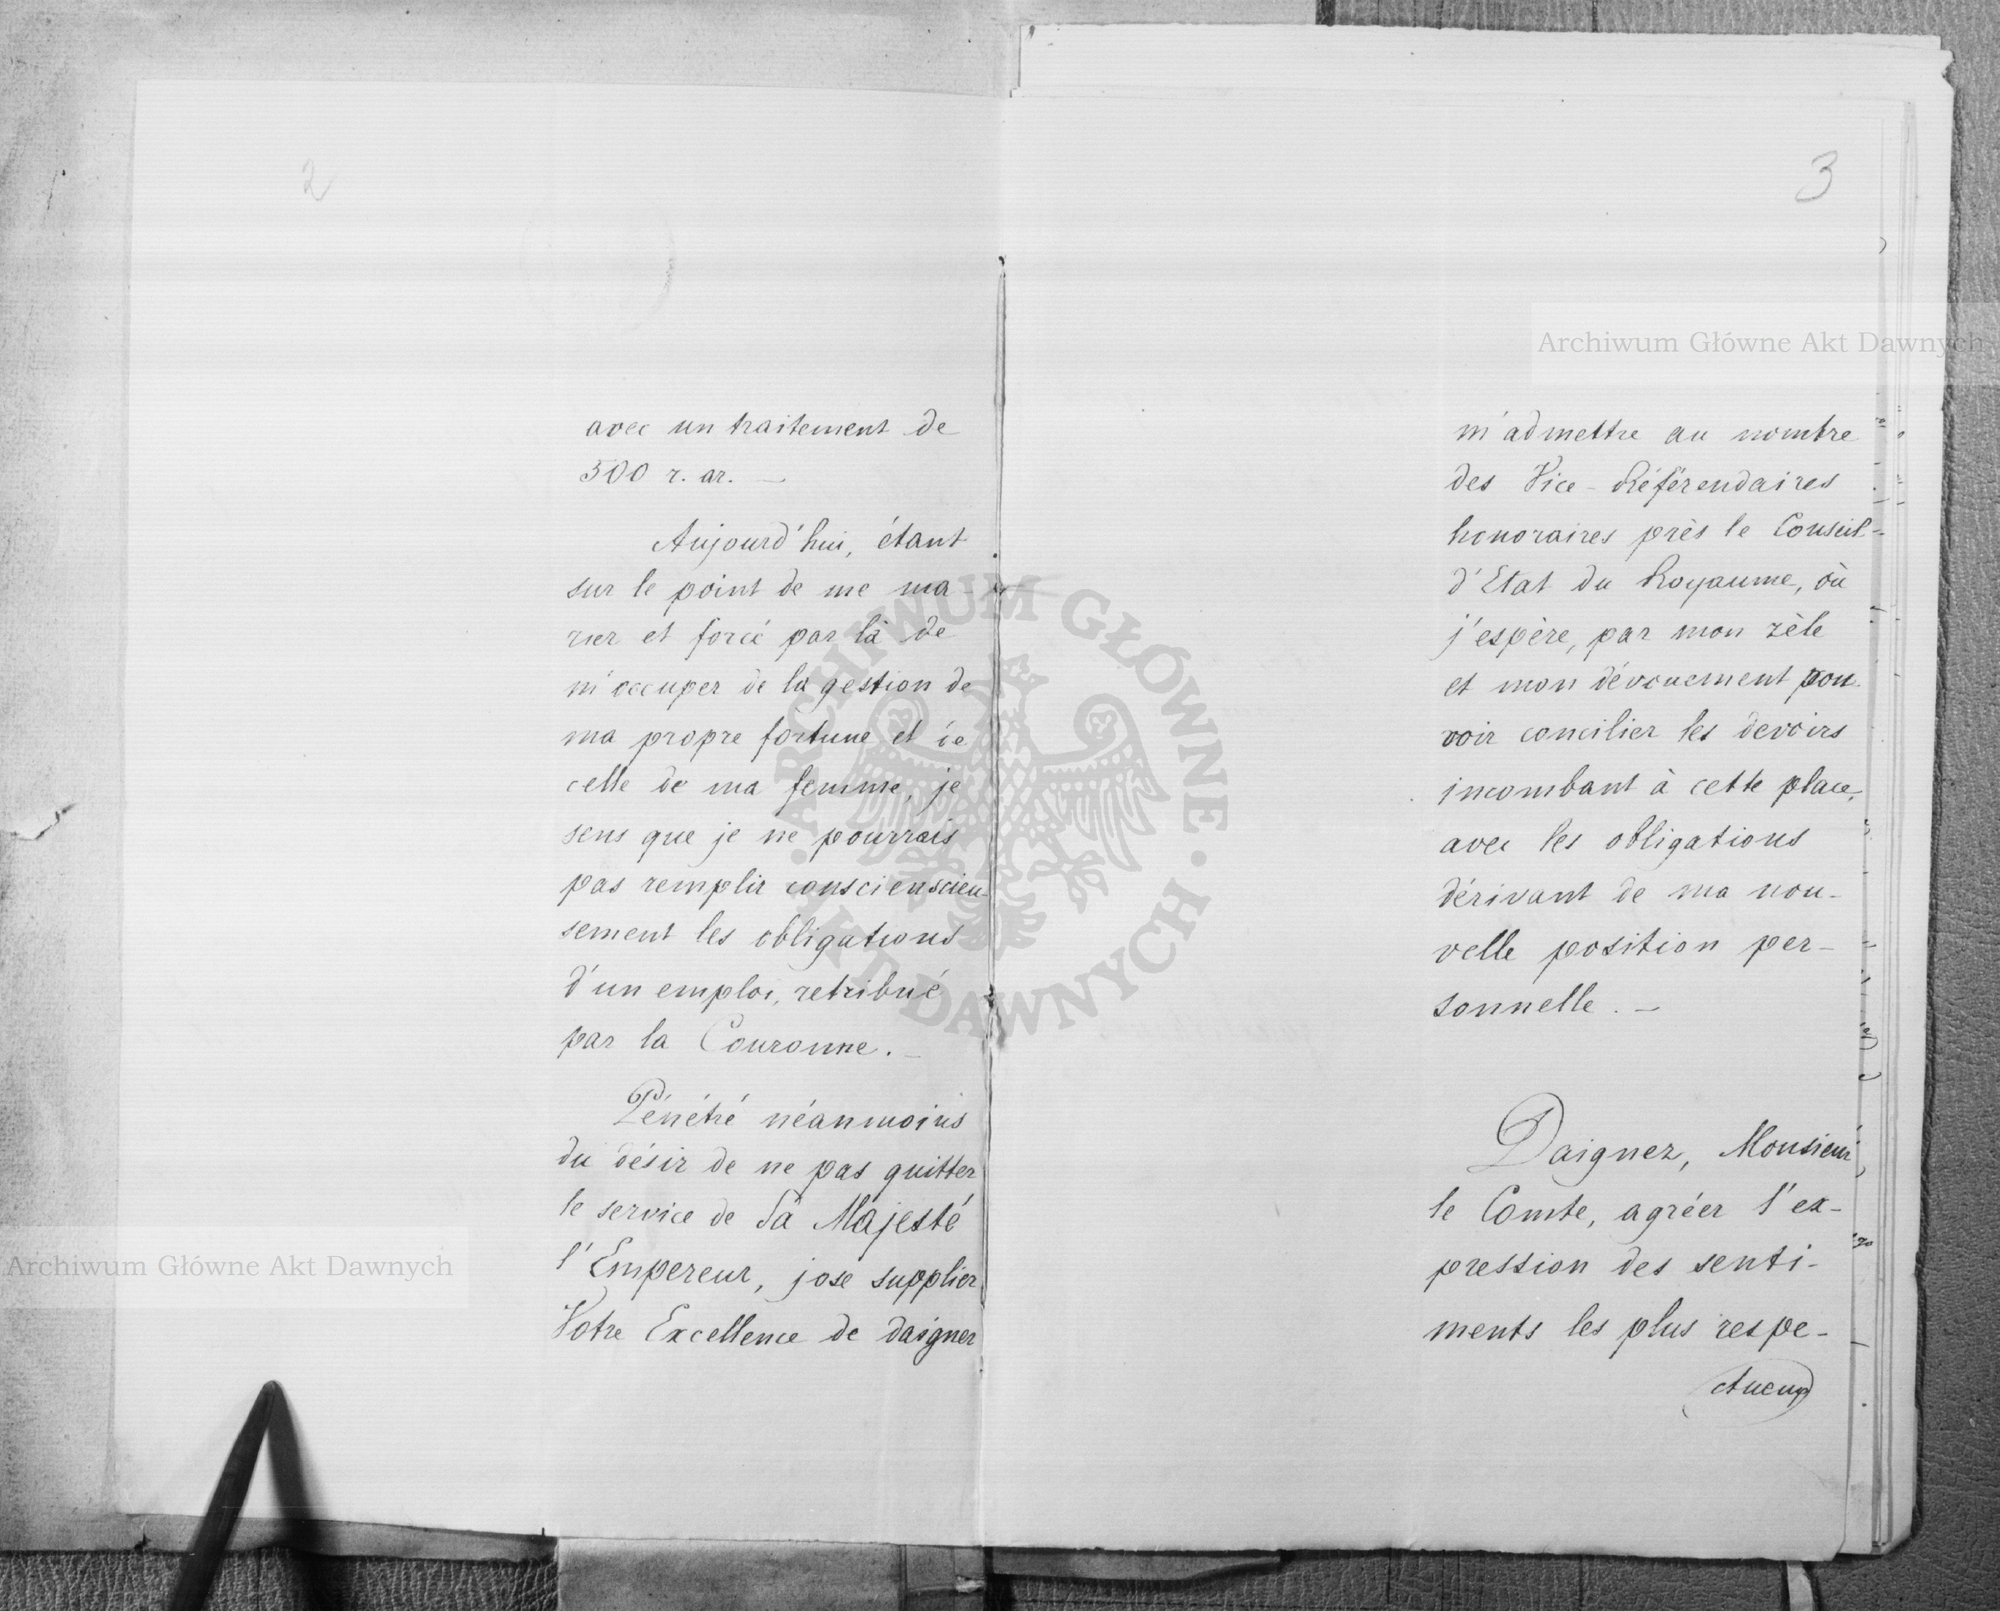 2
avec un traitement de
500 r. ar. —
Aujourd'hui, étant
sur le point de me ma-
rier et forcé par là de
m'occuper de la gestion de
ma propre fortune et de
celle de ma femme, je
sens que je ne pourrais
pas remplir conscienscieu-
sement les obligations
d'un emploi, retribué
par la Couronne. —
Pénétré néanmoins
du désir de ne pas quitter
le service de Sa Majesté
l'Empereur, j'ose supplier
Votre Excellence de daigner
3
m'admettre au nombre
des Vice-Référendaires
honoraires près le Conseil-
d'Etat du Royaume, où
j'espère, par mon zèle
et mon dévouement pou-
voir concilier les devoirs
incombant à cette place,
avec les obligations
dérivant de ma nou-
velle position per-
sonnelle. —
Daignez, Monsieur
le Comte, agréer l'ex-
pression des senti-
ments les plus respe-
Archiwum Główne Akt Dawnych
Archiwum Główne Akt Dawnych
ARCHIWUM GŁÓWNE · AKT DAWNYCH ·